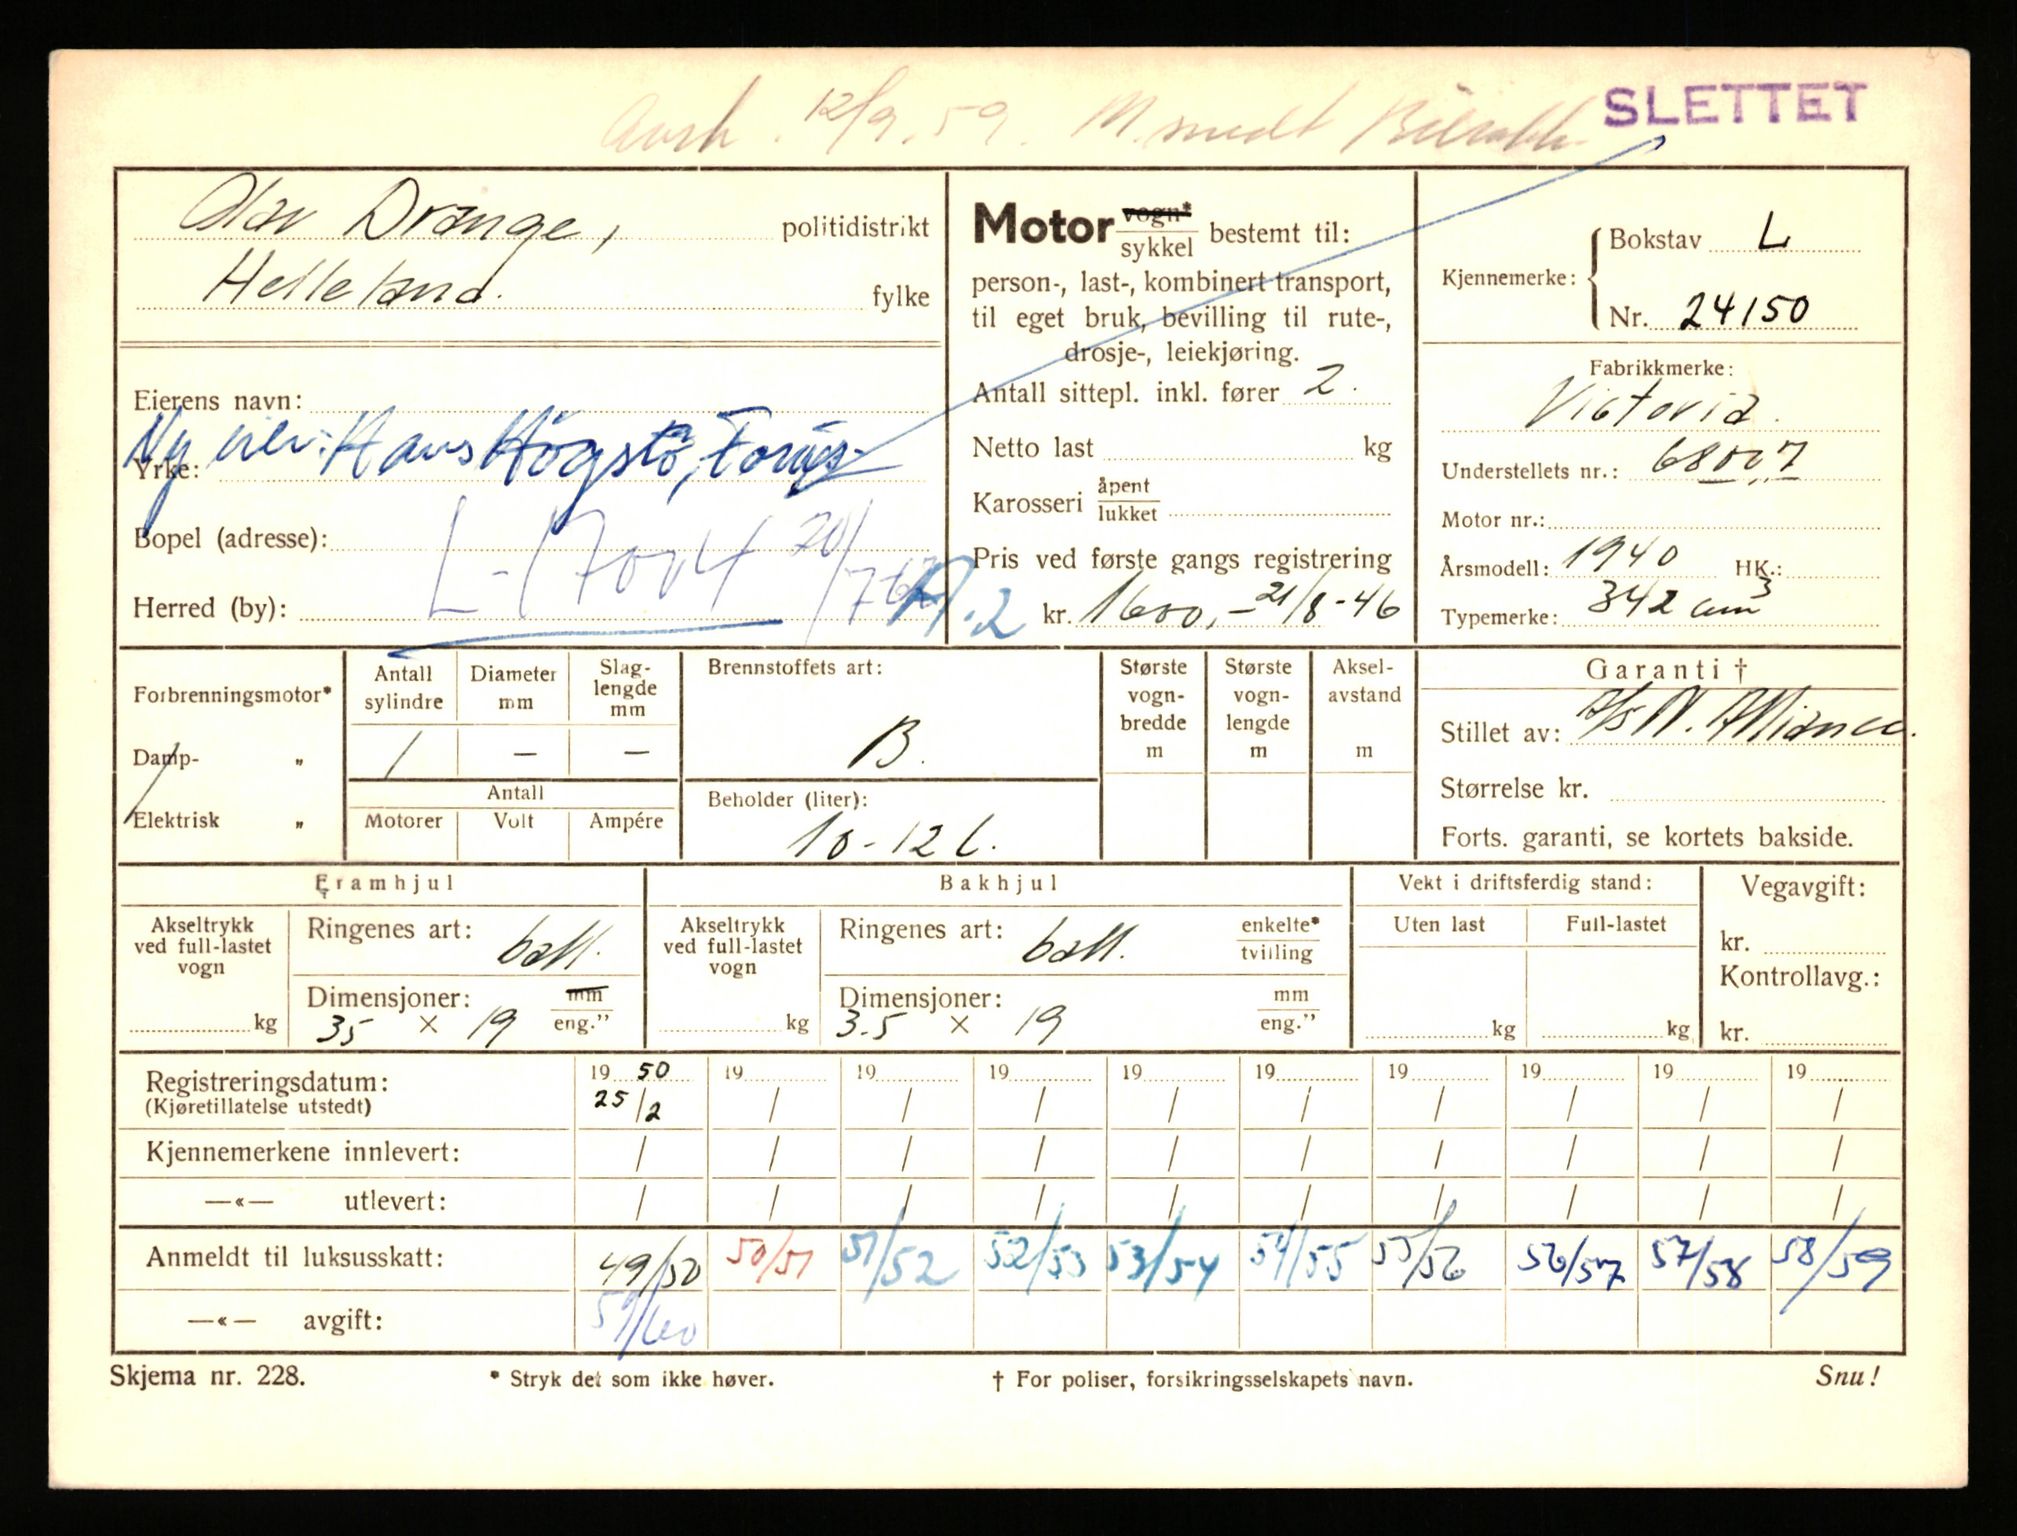 Avsk. 12/9.59. M. smedt
SLETTET
Olav Drange, politidistrikt
Helleland. fylke
Eierens navn:
Ny eier: Hans Högstö, Forus
Yrke:
Bopel (adresse):
L-17004 20/7-62
Herred (by):
A.2
Motor vogn*/sykkel bestemt til:
person-, last-, kombinert transport,
til eget bruk, bevilling til rute-,
drosje-, leiekjøring.
Antall sittepl. inkl. fører 2.
Netto last kg
Karosseri åpent/lukket
Pris ved første gangs registrering
kr. 1600,- 21/8-46
Kjennemerke: Bokstav L
Nr. 24150
Fabrikkmerke:
Victoria.
Understellets nr.: 68007
Motor nr.:
Årsmodell: 1940 HK.:
Typemerke: 342 cm3
Forbrenningsmotor*
Damp- „
Elektrisk „
Antall sylindre
Diameter mm
Slag-lengde mm
1 — —
Antall
Motorer Volt Ampére
Brennstoffets art:
B.
Beholder (liter):
10-12 l.
Største vogn-bredde m
Største vogn-lengde m
Aksel-avstand m
Garanti †
Stillet av: A/S N. Alliance.
Størrelse kr.
Forts. garanti, se kortets bakside.
Framhjul
Akseltrykk ved full-lastet vogn
kg
Ringenes art: ball.
Dimensjoner: mm/eng.”
35 × 19
Bakhjul
Akseltrykk ved full-lastet vogn
kg
Ringenes art: ball. enkelte*/tvilling
Dimensjoner: mm/eng.”
3.5 × 19
Vekt i driftsferdig stand:
Uten last Full-lastet
kg kg
Vegavgift:
kr.
Kontrollavg.:
kr.
Registreringsdatum: 19 50 19 19 19 19 19 19 19 19 19
(Kjøretillatelse utstedt) 25/2 / / / / / / / / /
Kjennemerkene innlevert: / / / / / / / / / /
—«— utlevert: / / / / / / / / / /
Anmeldt til luksusskatt: 49/50 50/51 51/52 52/53 53/54 54/55 55/56 56/57 57/58 58/59
—«— avgift: 59/60
Skjema nr. 228. * Stryk det som ikke høver. † For poliser, forsikringsselskapets navn. Snu!